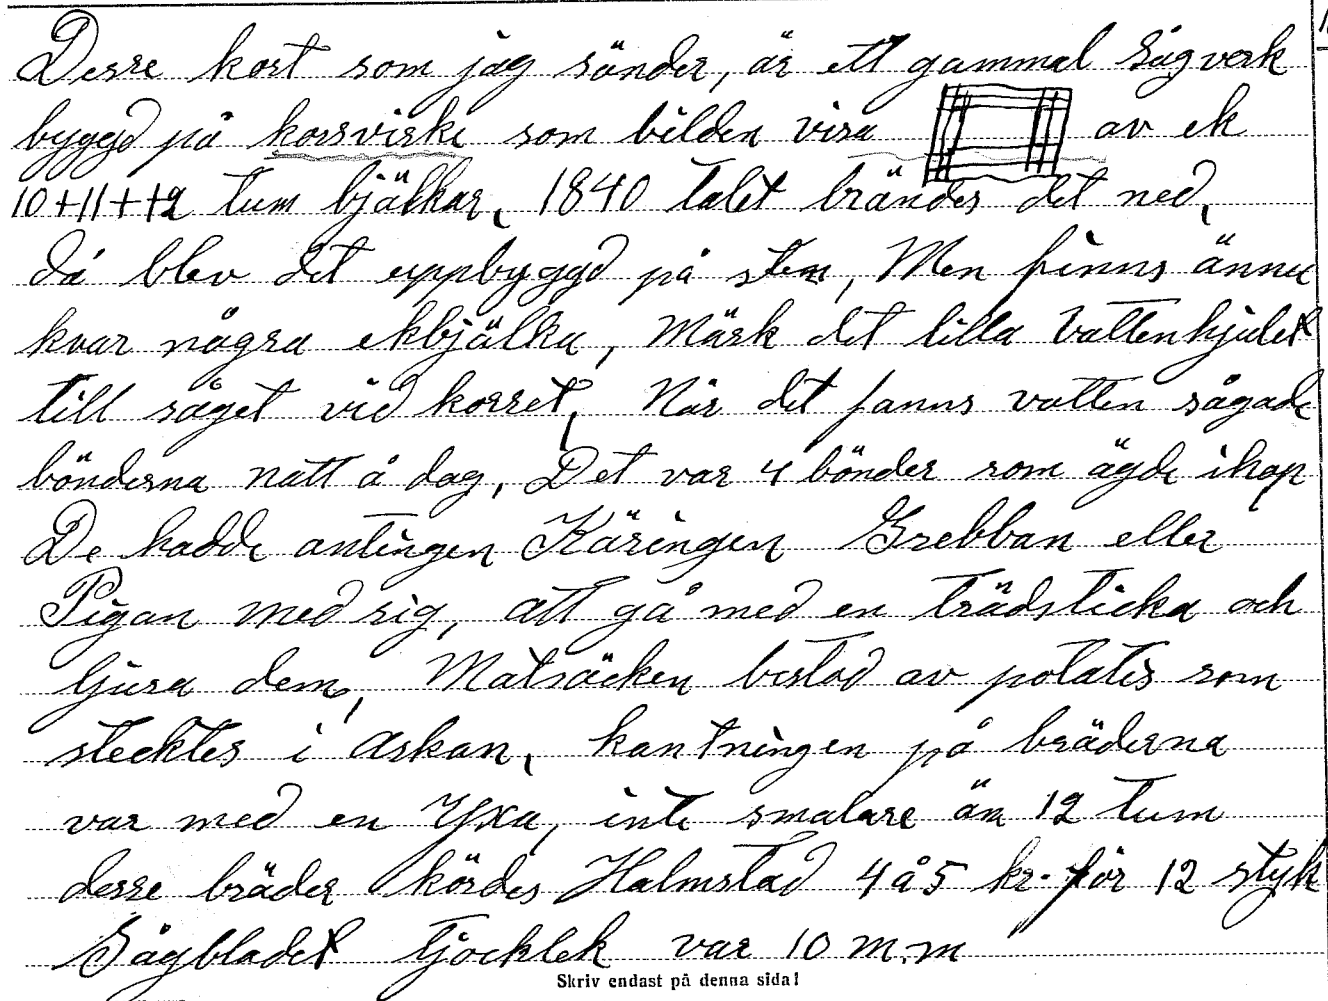 Desse kort som jag sänder, är ett gammal Sågverk
byggd på korsvirke som bilden visa av ek
10+11++12 tum bjälkar, 1840 talet brändes det ned,
då blev det uppbyggd på sten, Men finns ännu
kvar några ekbjälka, Märk det lilla Vattenhjulet
till såget vid korset, När det fanns vatten sågade
bönderna natt å dag, Det var 4 bönder som ägde ihop
De hadde antingen Käringen Grebban eller
Pigan med sig, att gå med en trädsticka och
ljusa dem, Matsäcken bestod av potatis som
stecktes i askan, kantningen på bräderna
var med en Yxa, inte smalare än 12 tum
desse bräder kördes Halmstad 4 å 5 kr. för 12 styk
Sågbladet tjocklek var 10 m.m
Skriv endast på denna sida!